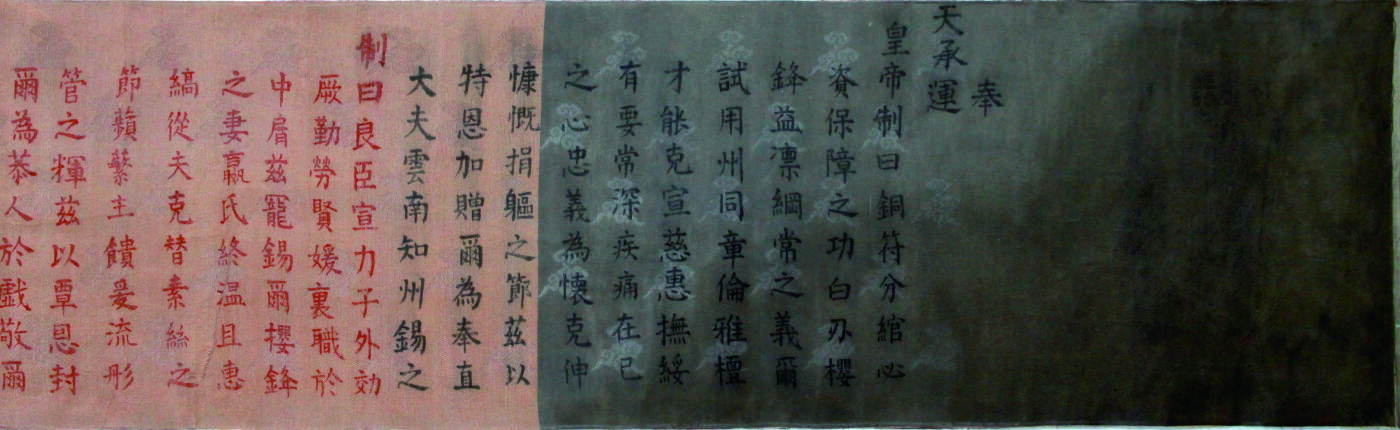 奉
天承運
皇帝制曰銅符分綰必
資保障之功白刃櫻
鋒益凛綱常之義爾
試用州同章倫雅檀
才能克宣慈惠撫綏
有要常深疾痛在已
之心忠義為懷克伸
慷慨捐軀之節茲以
特恩加贈爾為奉直
大夫雲南知州錫之
制曰良臣宣力子外効
厥勤勞賢媛裏職於
中膺茲寵錫爾櫻鋒
之妻嬴氏終温且惠
縞從夫克替素絲之
節蘋蘩主饋爰流彤
管之輝茲以覃恩封
爾為恭人於戲敬爾